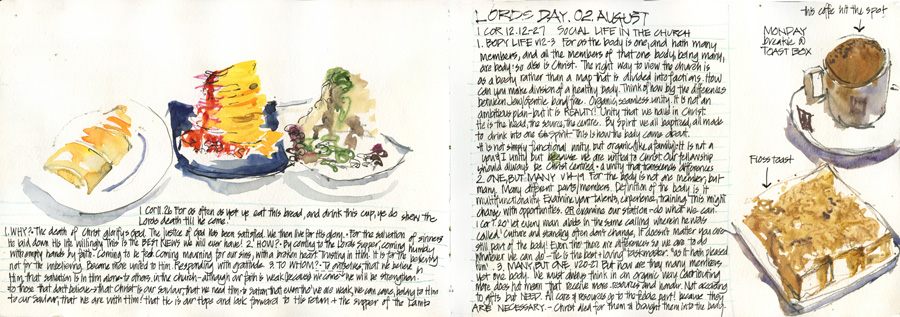 1 Cor 11.26 For as often as ye eat this bread, and drink this cup, ye do shew the
Lords death till he come.
1. WHY? The death of Christ glorifys God. The Justice of God has been satisfied. We then live for His glory. For the salvation of sinners
He laid down His life willingly. This is the BEST NEWS we will ever have! 2. HOW? By coming to the Lords supper, coming humbly
with empty hands by faith. Coming to be fed. Coming mourning for our sins, with a broken heart trusting in Him. It is for the believing
not for the unbelieving. Become more united to Him. Responding with gratitude. 3. TO WHOM? To ourselves, that we believe in
Him, that salvation is in Him alone. To others, in the church - although our faith is weak, because we come - He will be strengthen
to those that don't believe - that Christ is our Saviour, that we need Him. To Satan, that even tho' we are weak, we can come, belong to Him
to our Saviour, that we are with Him! that He is our hope and look forward to His return + the supper of the Lamb
LORDS DAY. 02 AUGUST
1 COR 12.12-27 SOCIAL LIFE IN THE CHURCH
1. BODY LIFE v12-3 For as the body is one, and hath many
members, and all the members of that one body, being many,
are body: so also is Christ. The right way to view the church is
as a body rather than a map that is divided into factions. How
can you make division of a healthy body. Think of how big the differences
between Jew/Gentile bond/free. Organic, seamless unity. It is not an
ambitious plan - but it is REALITY! Unity that we have in Christ.
He is the head, the source, the centre. By Spirit we all baptized, all made
to drink into one Spirit. This is how the body came about.
It is not simply functional unity, but organic, like a family. It is not a
unity but because we are united to Christ. Our fellowship
should always be Christ centred. A unity that transcends differences
2. ONE, BUT MANY v14-19 For the body is not one member, but
many. Many different parts/members. Definition of the body is it
multifunctionality. Examine your talents, experience, training. This might
change with opportunities. OR examine our station - do what we can.
1 Cor 7.20 let every man abide in the same calling wherein he was
called. Culture and standing often don't change, it doesn't matter you are
still part of the body! Even tho' there are differences so we are to do
whatever we can do - He is the best + loving "postmaker". "so it hath pleased
him". 3. MANY BUT ONE. v20-27 But now are they many members,
yet one body. We must always think in an organic way. Contributing
more does not mean that receive more resources and honour. Not according
to gifts but NEED. All care + resources go to the feeble part! because they
ARE NECESSARY. - Christ died for them + brought them into the body.
this coffee hit the spot
MONDAY
breakie @
TOAST BOX
Floss toast